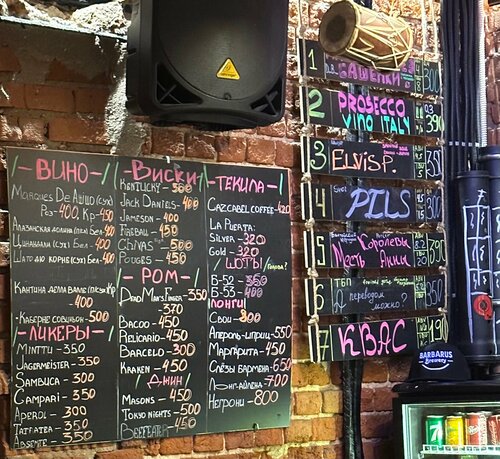 -ВИНО-
Marques De
Роз-400, Кр-450
Алазанская долина
Цинандали (сух) Бел 400
Шато дю Корне (сух) Бел 400
Кантина делла Бавле (пк)
400
Каберне Совиньон-500
-ЛИКЕРЫ-
Minttu-350
Jagermeister-350
Sambuca-300
Campari-350
Aperol-300
Absente-350
-Виски-
Kentucky-360
Jack Daniels-400
Jameson-400
Fireball-450
Chivas-500
Pogues-450
-РОМ-
Dead Man's Finger-350
370
Bacoo-450
Relicario-450
Barcelo-300
Kraken-450
-Джин-
Masons-450
Tokyo nights-500
Beefeater-450
-ТЕКИЛА-
Cazcabel coffee-420
La Puerta:
Silver-320
Gold-320
ШОТЫ
Б-52-350
Б-53-400
ЛОНГИ
Свои-800
Апероль-шприц-550
Маргарита-450
Слёзы бармена-650
Лонг-айленд-700
Негрони-800
1 Башенки 300
2 PROSECCO
VINO ITALY 390
3 ELVISP. 350
4 PILS
5 Королевы
Месть Анны 390
6 ТБП
С переводом
можно? 350
7 КВАС 490
BEHRINGER
BARBARUS
Brewery
7